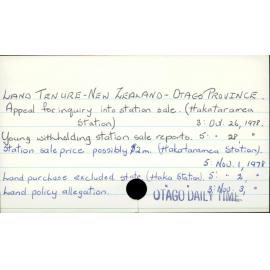 LAND TENURE - NEW ZEALAND - OTAGO PROVINCE.
Appeal for inquiry into station sale. (Hakataramea
Station) 3: Oct. 26, 1978.
Young withholding station sale reports. 5: " 28, "
Station sale price possibly $2m. (Hakataramea Station).
5: Nov. 1, 1978
Land purchase excluded state (Haka Station). 5: " 2, "
Land policy allegation. 3: Nov. 3, "
OTAGO DAILY TIME